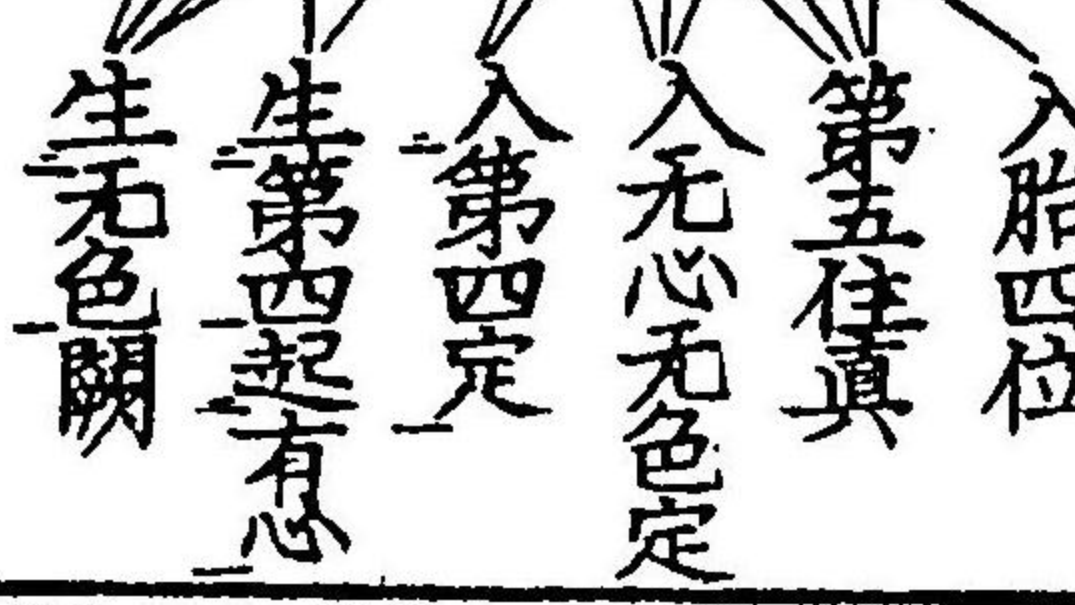 入胎四位
第五住真
入无心无色定
入第四定
生第四起有心
生无色闕